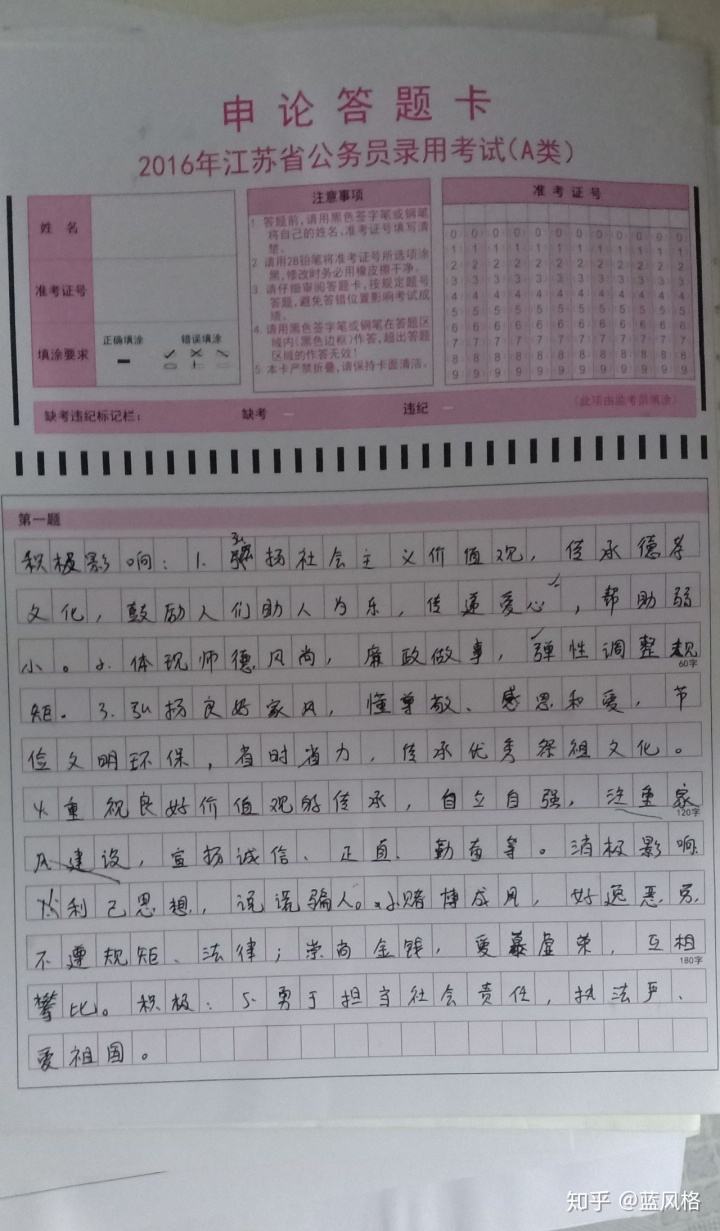 申论答题卡
2016年江苏省公务员录用考试(A类)
姓 名
准考证号
填涂要求
正确填涂
错误填涂
注意事项
1 答题前,请用黑色签字笔或钢笔
将自己的姓名、准考证号填写清
楚。
2 请用2B铅笔将准考证号所选项涂
黑,修改时务必用橡皮擦干净。
3 请仔细审阅答题卡,按规定题号
答题,避免答错位置影响考试成
绩。
4. 请用黑色签字笔或钢笔在答题区
域内(黑色边框)作答,超出答题
区域的作答无效!
5 本卡严禁折叠,请保持卡面清洁。
准考证号
0 0 0 0 0 0 0 0 0 0 0
1 1 1 1 1 1 1 1 1 1 1
2 2 2 2 2 2 2 2 2 2 2
3 3 3 3 3 3 3 3 3 3 3
4 4 4 4 4 4 4 4 4 4 4
5 5 5 5 5 5 5 5 5 5 5
6 6 6 6 6 6 6 6 6 6 6
7 7 7 7 7 7 7 7 7 7 7
8 8 8 8 8 8 8 8 8 8 8
9 9 9 9 9 9 9 9 9 9 9
缺考违纪标记栏:
缺考
违纪
(此项由监考员填涂)
第一题
积极影响:1.弘扬社会主义价值观,传承德孝
文化,鼓励人们助人为乐,传递爱心,帮助弱
小。2.体现师德风尚,廉政做事,弹性调整规
60字
矩。3.弘扬良好家风,懂尊敬、感恩和爱,节
俭文明环保,省时省力,传承优秀祭祖文化。
4.重视良好价值观的传承,自立自强,注重家
120字
风建设,宣扬诚信、正直、勤奋等。消极影响
利己思想,说谎骗人。赌博成风,好逸恶劳,
不遵规矩、法律;崇尚金钱,爱慕虚荣,互相
180字
攀比。积极:5.勇于担当社会责任,执法严、
爱祖国。
知乎 @蓝风格